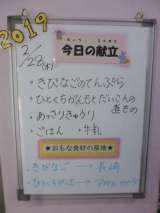 2019
きょう こんだて
今日の献立
2/28(木)
・きびなごのてんぷら
・ひとくちがんもとだいこんの
煮もの
・あっさりきゅうり
・ごはん ・牛乳
★おもな食材の産地★
きびなご → 長崎